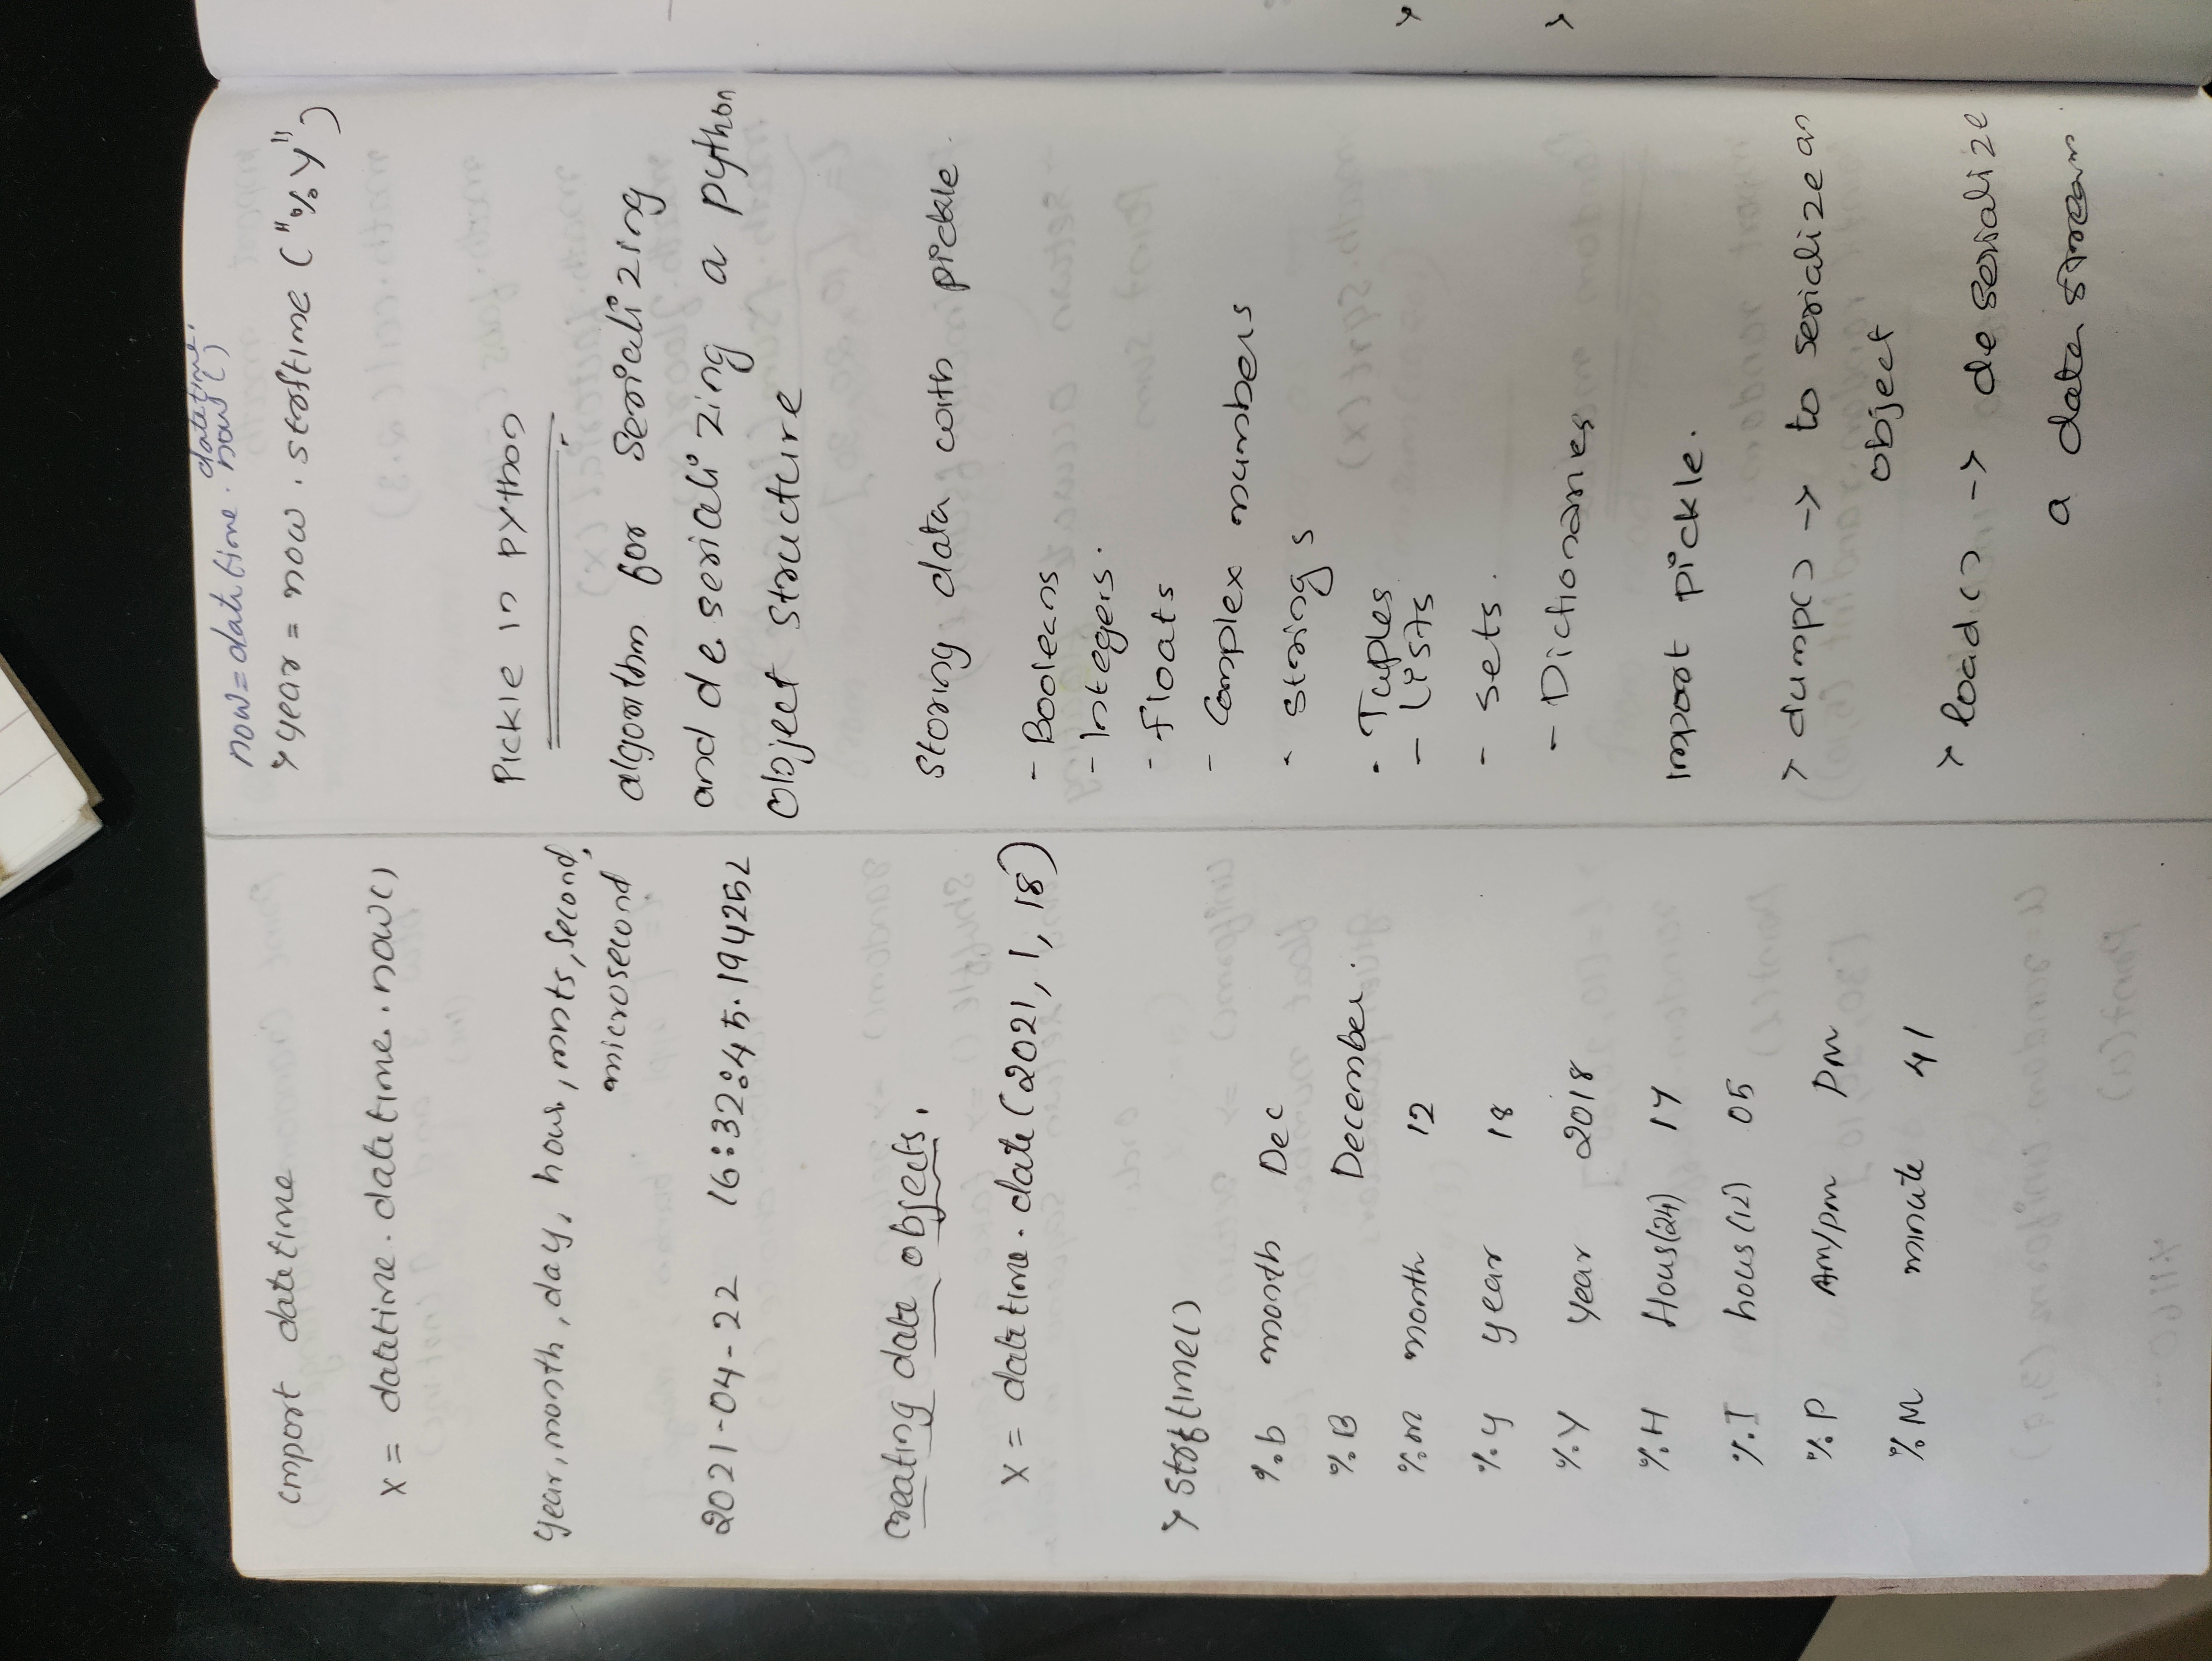 import datetime
x = datetime.datetime.now()
year, month, day, hour, mnts, second,
microsecond
2021-04-22 16:32:45.194252
creating date objects.
x = datetime.date(2021, 1, 18)
> strftime()
%b month Dec
%B December.
%m month 12
%y year 18
%Y year 2018
%H Hour(24) 17
%I hour(12) 05
%P Am/pm Pm
%M minute 41
datetime.
now = datetime. now()
> year = now.strftime("%Y")
Pickle in python
algorithm for serializing
and deserializing a python
object structure
Storing data with pickle.
- Booleans
- Integers.
- floats
- Complex numbers
- strings
- Tuples
- Lists
- sets.
- Dictionaries
Import pickle.
> dump() -> to serialize an
object
> load() -> deserialize
a data stream